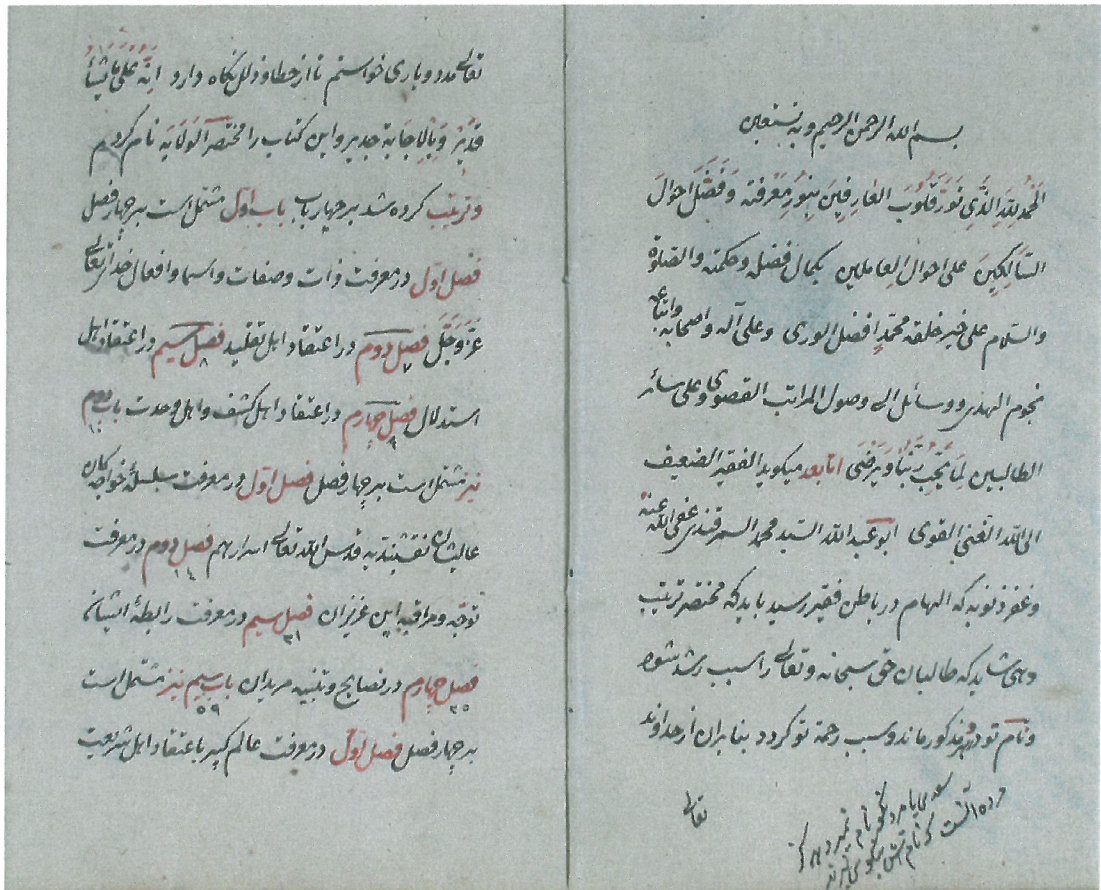 بسم الله الرحمن الرحیم وبه نستعین
اَلْحَمْدُ لِلّٰهِ الَّذِی نَوَّرَ قُلُوبَ العَارِفِینَ بِنُورِ مَعْرِفَتِهِ وَفَضَّلَ احوالَ
السَّالِکِینَ علی احوال العاملین بکمال فضله وحکمته والصلوة
والسلام علی خیر خلقه محمّدٍ افضل الوری وعلی آله واصحابه واتباعه
نجوم الهدی ووسائل الی وصول المراتب القصوی وعلی سائر
الطالبین لِمَا یُحِبُّ رَبُّنَا وَیَرْضَی امّا بعد میگوید الفقیر الضعیف
الی الله الغنی القوی ابو عبد الله السید محمد السمرقندی عفی الله عنه
وغفر ذنوبه که الهام در باطن فقیر رسید باید که مختصر ترتیب
دهی شاید که طالبان حق سبحانه وتعالی را سبب رشد شود
ونام تو در دهر مذکور ماند وسبب رحمة تو کردد بنا بران از خداوند
سعدیا مرد نکونام نمیرد هرگز
مرده آنست که نامش بنکویی نبرند
تعالی
تعالی مدد ویاری خواستم تا از خطا وزلل نکاه دارد اِنَّهُ عَلَی مَا یَشَاءُ
قَدِیْرٌ وَبِالاِجَابَةِ جدیر واین کتاب را مختصر الوَلَایَه نام کردم
وترتیب کرده شد بر چهار باب باب اوّل مشتمل است بر چهار فصل
فصل اوّل در معرفت ذات وصفات واسما وافعال خدای تعالی
عَزَّ وَجَلَّ فصل دوم در اعتقاد اهل تقلید فصل سیم در اعتقاد اهل
استدلال فصل چهارم در اعتقاد اهل کشف واهل وحدت باب دوم
نیز مشتمل است بر چهار فصل فصل اوّل در معرفت سلسلهٔ خواجه کان
عالیشان نقشبندیه قدس الله تعالی اسرارهم فصل دوم در معرفت
توجّه ومراقبه این عزیزان فصل سیم در معرفت رابطهٔ ایشان
فصل چهارم در نصایح وتنبیه مریدان باب سیم نیز مشتمل است
بر چهار فصل فصل اوّل در معرفت عالم کبیر باعتقاد اهل شریعت